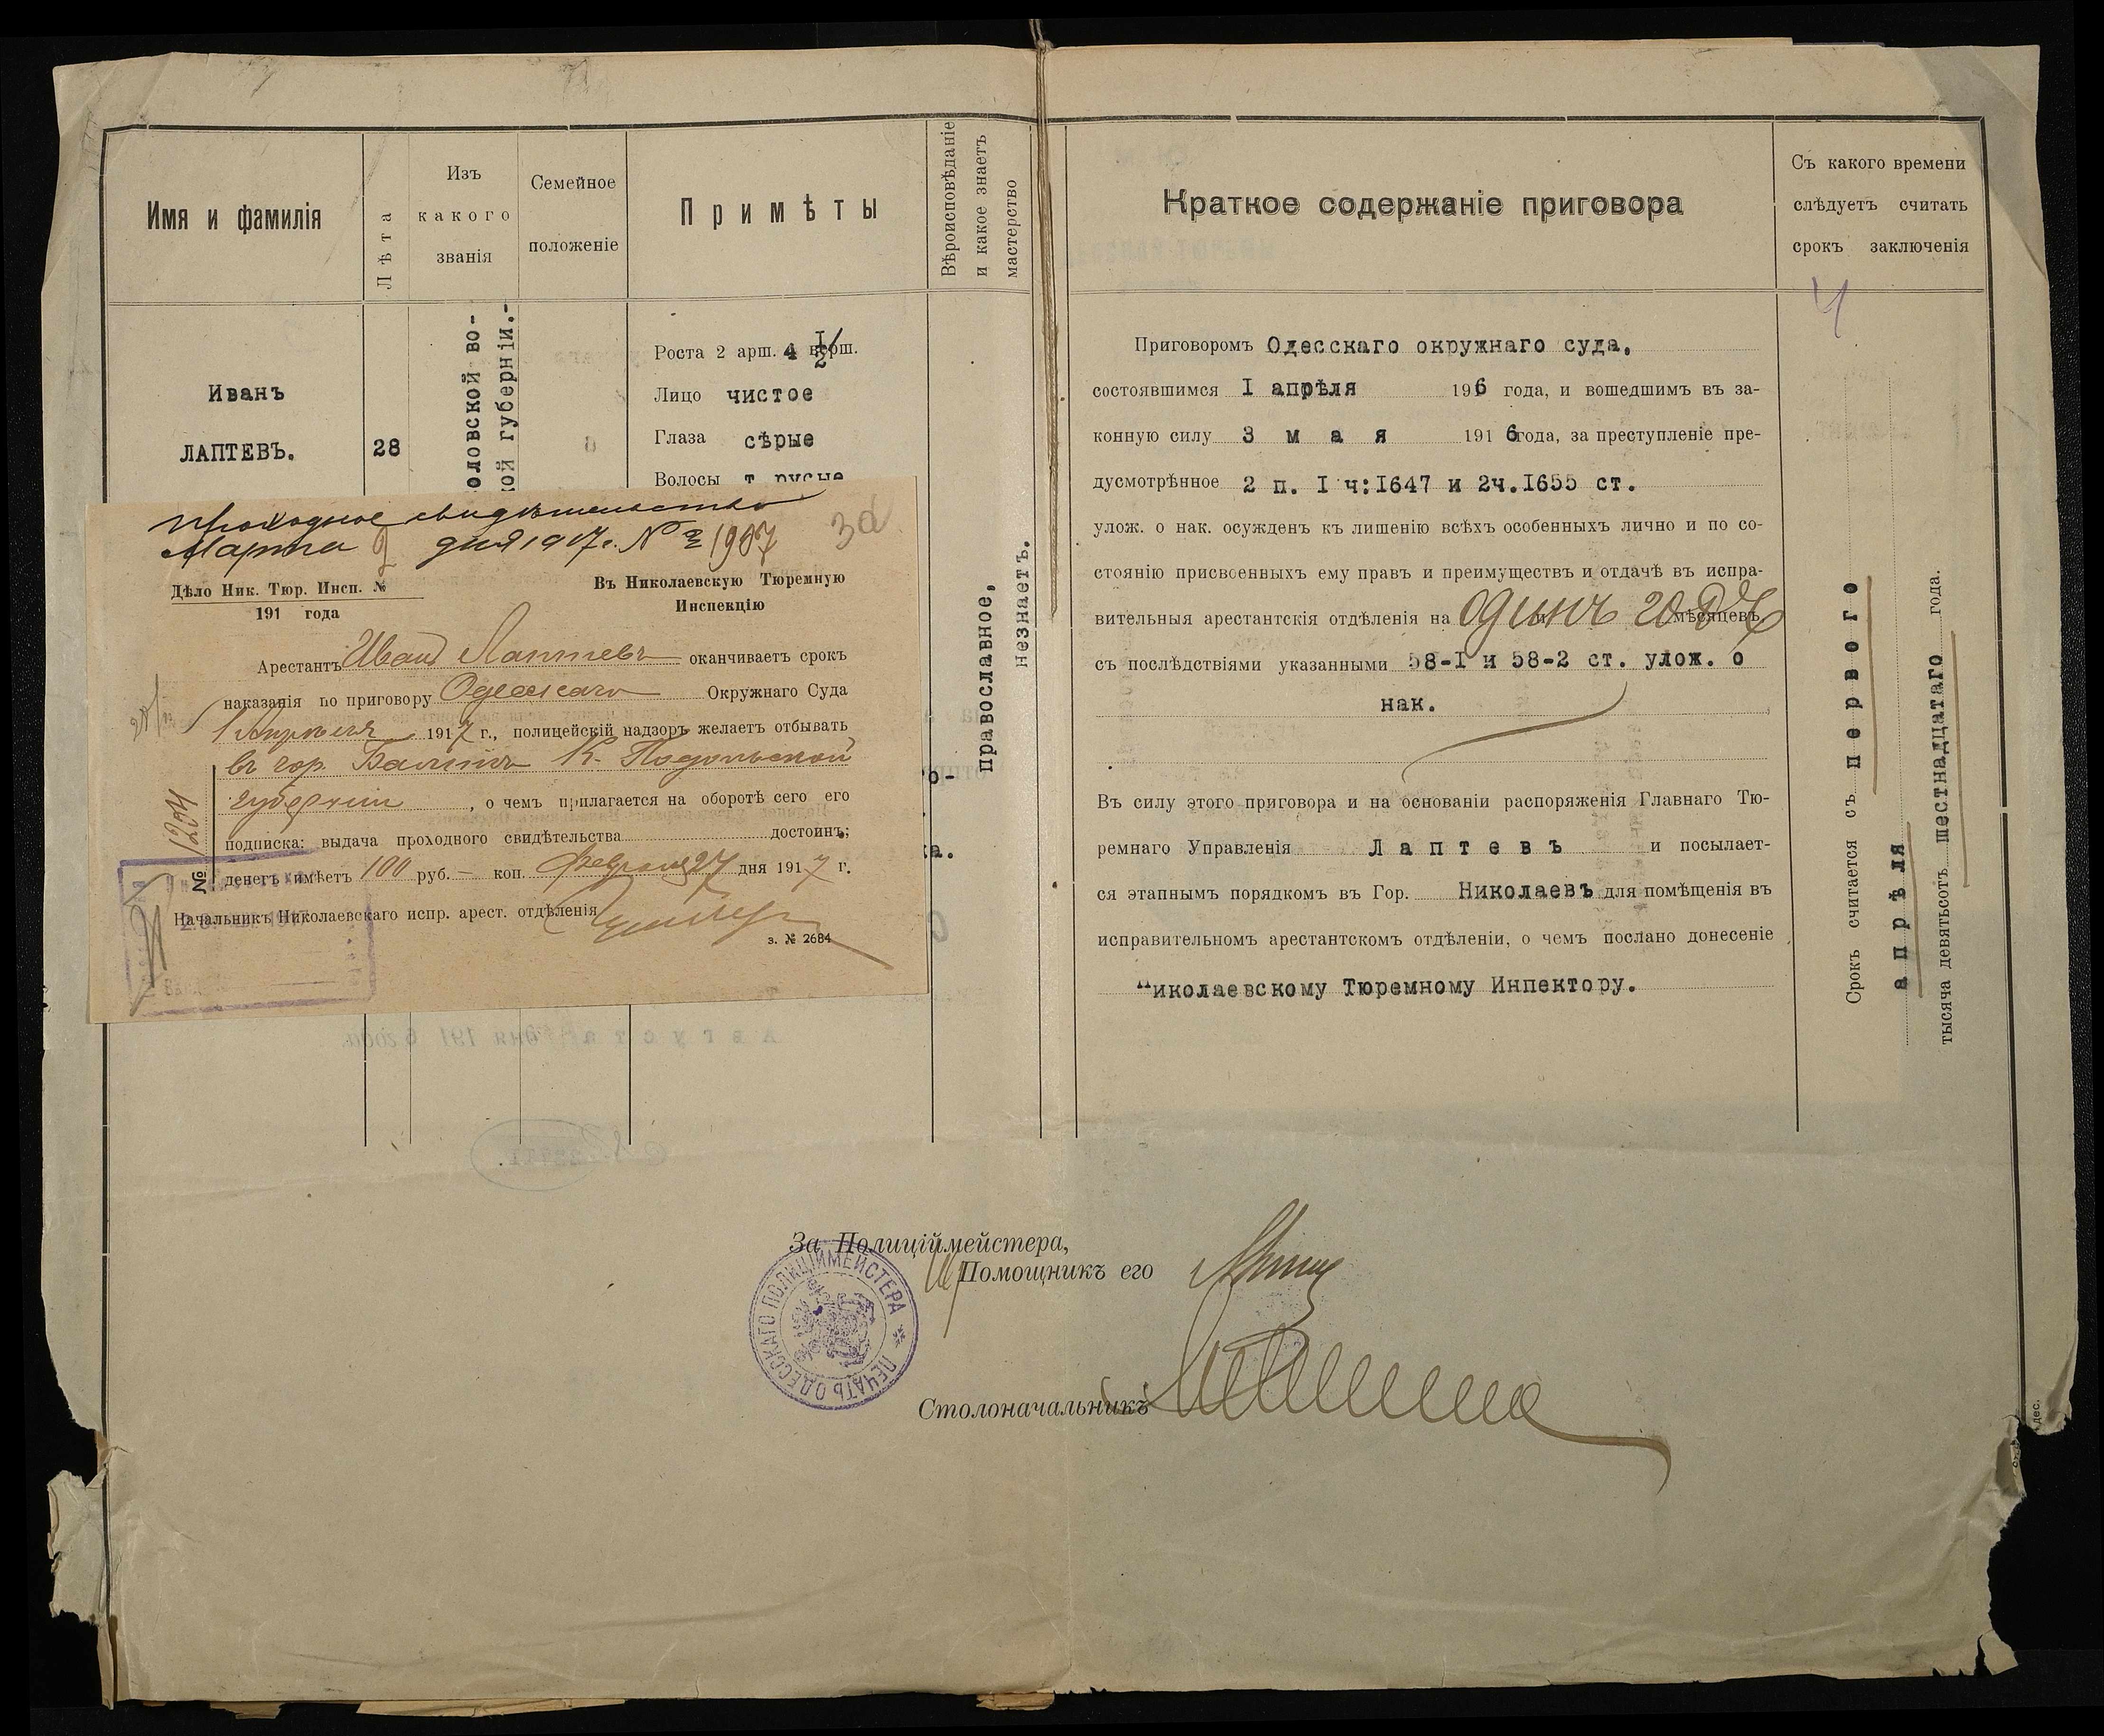 Имя и фамилія
Лѣта
Изъ
какого
званія
Семейное
положеніе
Примѣты
Вѣроисповѣданіе
и какое знаетъ
мастерство
Иванъ
ЛАПТЕВЪ.
28
оловской во-
кой губерніи.-
Роста 2 арш. 4 1/2 верш.
Лицо чистое
Глаза сѣрые
Волосы т русые
православное,
незнаетъ.
Проходное свидѣтельство
Марта 2 дня 1917 г. № 1907
30
Дѣло Ник. Тюр. Инсп. №
191 года
Въ Николаевскую Тюремную
Инспекцію
Арестантъ Иванъ Лаптевъ оканчиваетъ срокъ
наказанія по приговору Одесскаго Окружнаго Суда
1 Апрѣля 1917 г., полицейскій надзоръ желаетъ отбывать
въ гор. Балтѣ Подольской
губерніи, о чемъ прилагается на оборотѣ сего его
подписка; выдача проходного свидѣтельства достоинъ;
денегъ имѣетъ 100 руб. — коп. Февраля 27 дня 1917 г.
№ 1204
Начальникъ Николаевскаго испр. арест. отдѣленія
з. № 2684
Краткое содержаніе приговора
Приговоромъ Одесскаго окружнаго суда,
состоявшимся I апрѣля 196 года, и вошедшимъ въ за-
конную силу 3 мая 1916 года, за преступленіе пре-
дусмотрѣнное 2 п. I ч:1647 и 2ч.1655 ст.
улож. о нак. осужденъ къ лишенію всѣхъ особенныхъ лично и по со-
стоянію присвоенныхъ ему правъ и преимуществъ и отдачѣ въ испра-
вительныя арестантскія отдѣленія на одинъ годъ мѣсяцевъ,
съ послѣдствіями указанными 58-I и 58-2 ст. улож. о
нак.
Въ силу этого приговора и на основаніи распоряженія Главнаго Тю-
ремнаго Управленія Лаптевъ и посылает-
ся этапнымъ порядкомъ въ Гор. Николаевъ для помѣщенія въ
исправительномъ арестантскомъ отдѣленіи, о чемъ послано донесеніе
Николаевскому Тюремному Инпектору.
Съ какого времени
слѣдуетъ считать
срокъ заключенія
4
Срокъ считается съ перваго
апрѣля
тысяча девятьсотъ шестнадцатаго года.
За Полиціймейстера,
Помощникъ его
ПЕЧАТЬ ОДЕССКАГО ПОЛИЦІЙМЕЙСТЕРА
Столоначальникъ